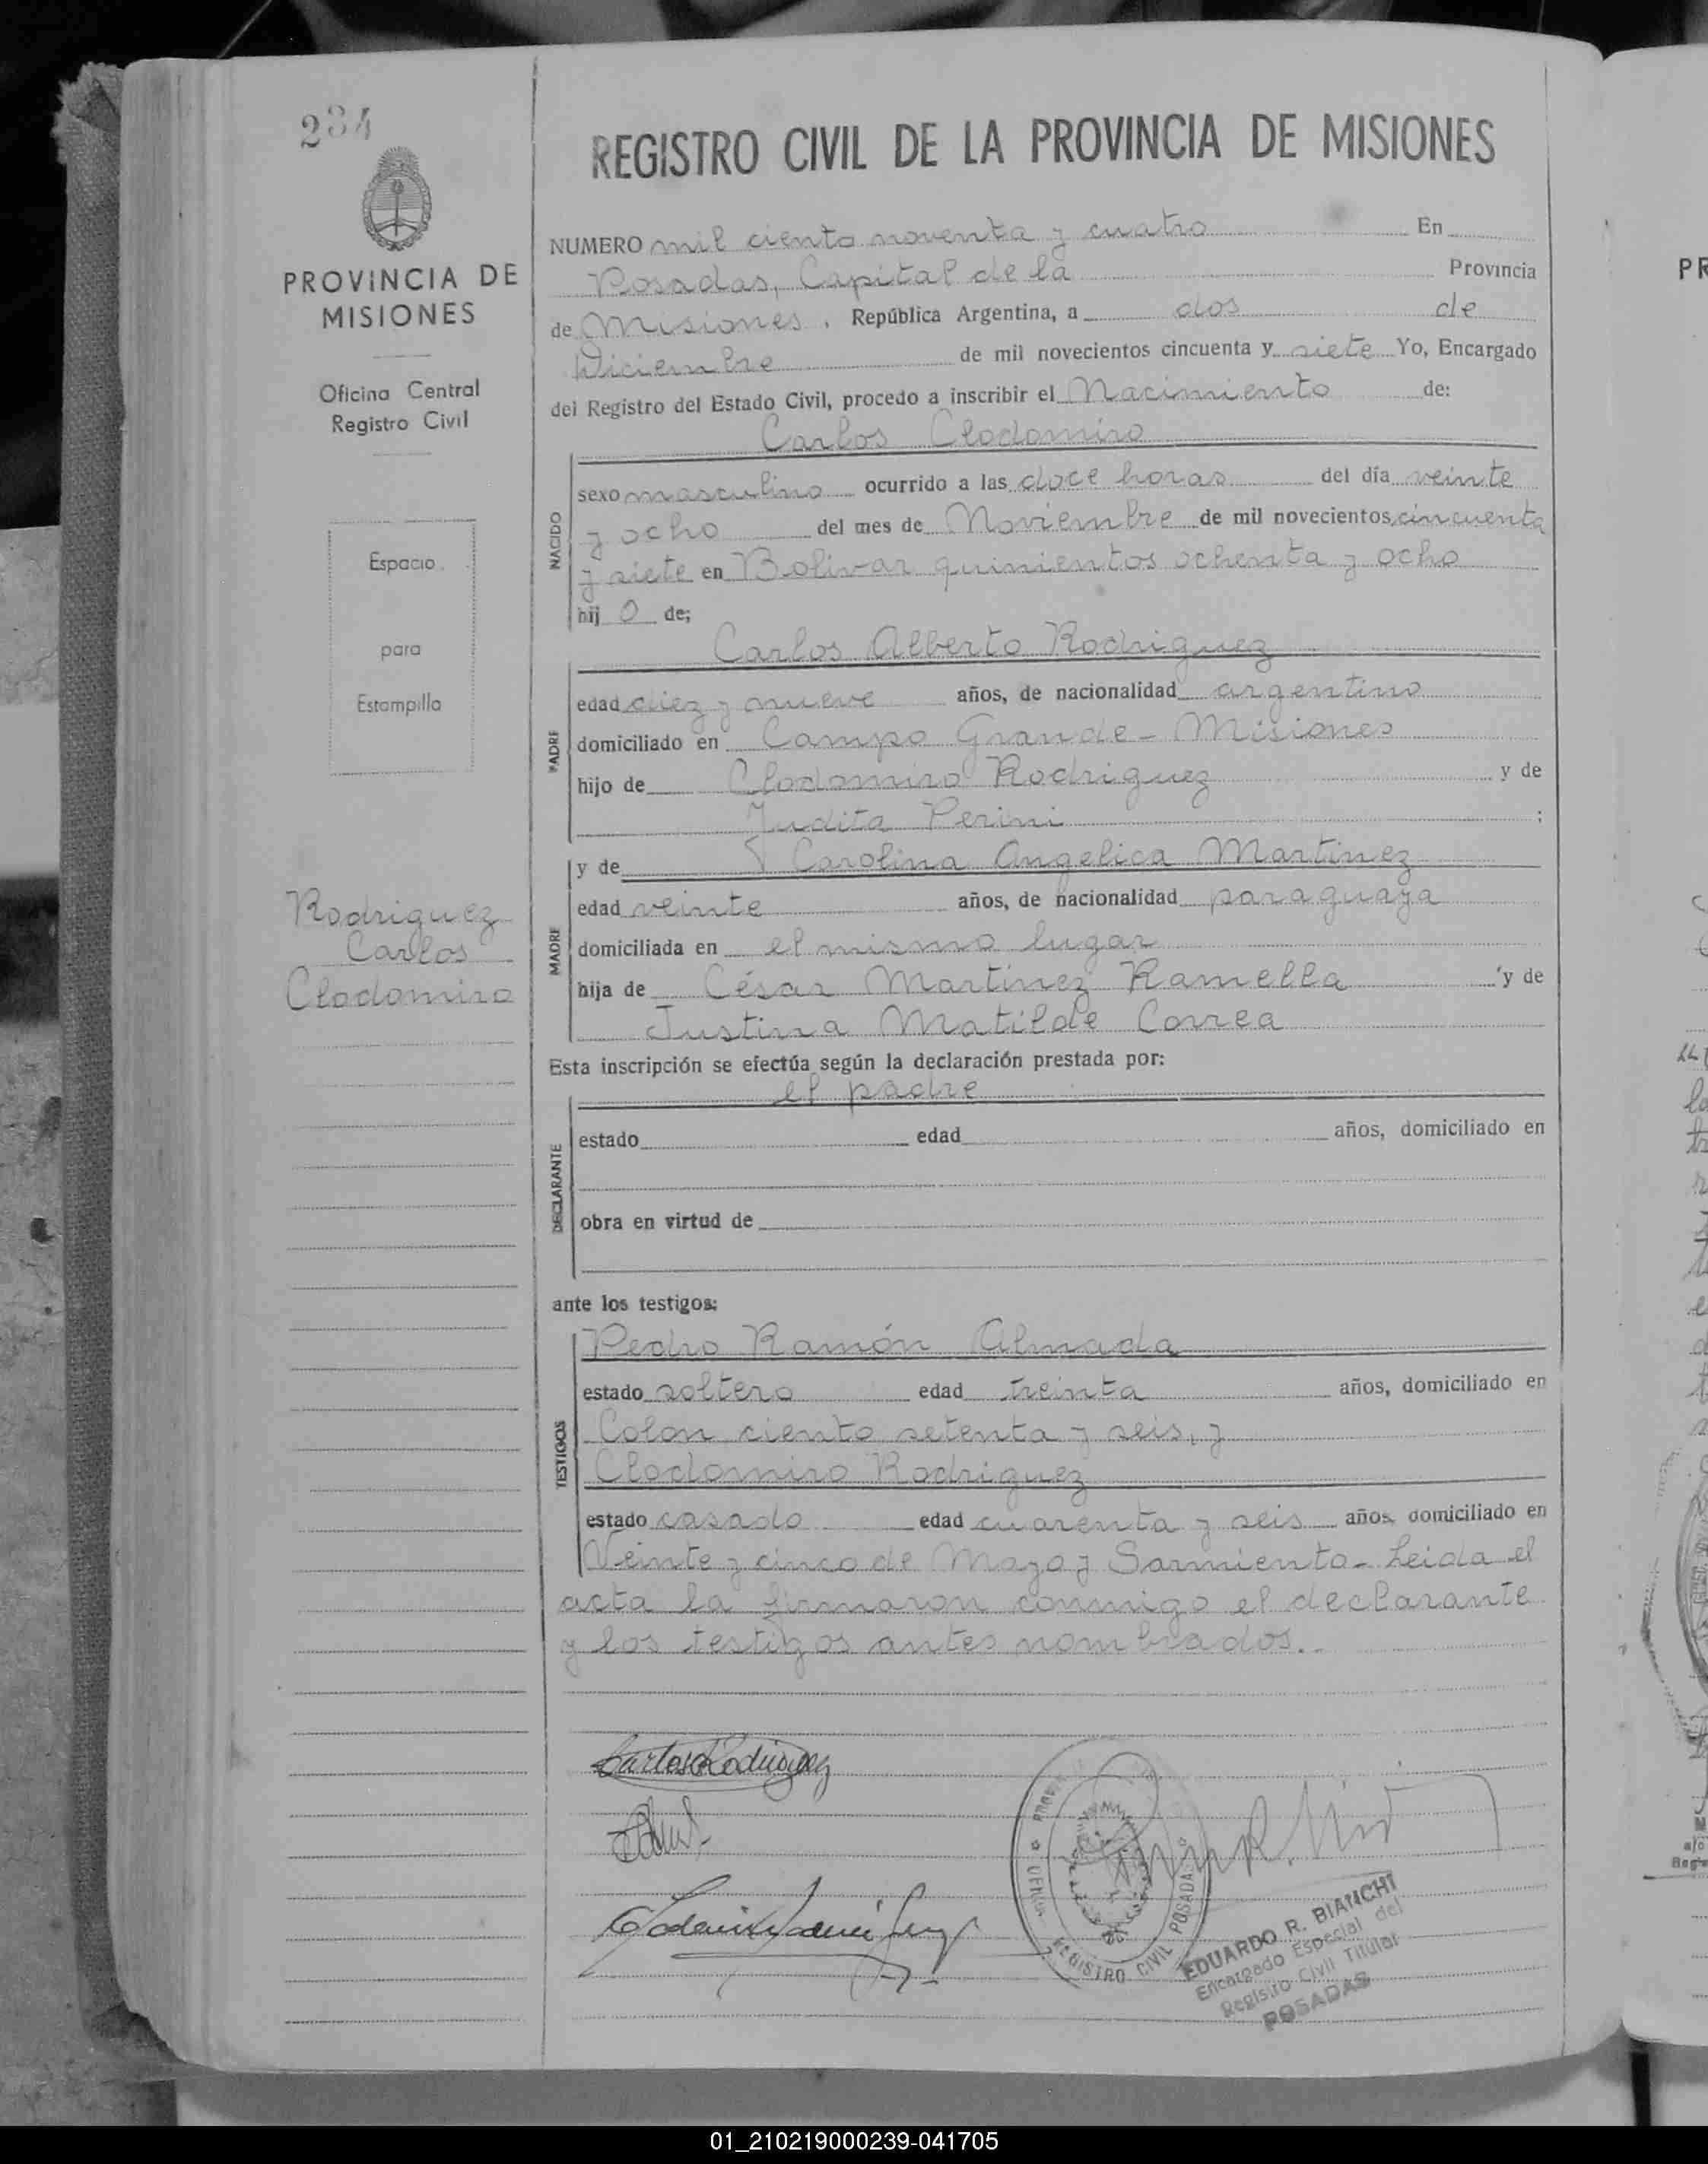 234
REGISTRO CIVIL DE LA PROVINCIA DE MISIONES
PROVINCIA DE
MISIONES
Oficina Central
Registro Civil
Espacio
para
Estampilla
Rodriguez
Carlos
Clodomiro
NUMERO mil ciento noventa y cuatro En
Posadas, Capital de la Provincia
de Misiones, República Argentina, a dos de
Diciembre de mil novecientos cincuenta y siete Yo, Encargado
del Registro del Estado Civil, procedo a inscribir el Nacimiento de:
Carlos Clodomiro
NACIDO
sexo masculino ocurrido a las doce horas del día veinte
y ocho del mes de Noviembre de mil novecientos cincuenta
y siete en Bolivar quinientos ochenta y ocho
hij o de;
Carlos Alberto Rodriguez
PADRE
edad diez y nueve años, de nacionalidad argentino
domiciliado en Campo Grande - Misiones
hijo de Clodomiro Rodriguez y de
Judita Perini ;
y de Carolina Angelica Martinez
MADRE
edad veinte años, de nacionalidad paraguaya
domiciliada en el mismo lugar
hija de César Martinez Ramella y de
Justina Matilde Correa
Esta inscripción se efectúa según la declaración prestada por:
el padre
DECLARANTE
estado edad años, domiciliado en
obra en virtud de
ante los testigos:
Pedro Ramón Almada
TESTIGOS
estado soltero edad treinta años, domiciliado en
Colon ciento setenta y seis, y
Clodomiro Rodriguez
estado casado edad cuarenta y seis años, domiciliado en
Veinte y cinco de Mayo y Sarmiento - Leida el
acta la firmaron conmigo el declarante
y los testigos antes nombrados.-
Carlos A Rodriguez
REGISTRO CIVIL POSADAS
EDUARDO R. BIANCHI
Encargado Especial del
Registro Civil Titular
POSADAS
01_210219000239-041705